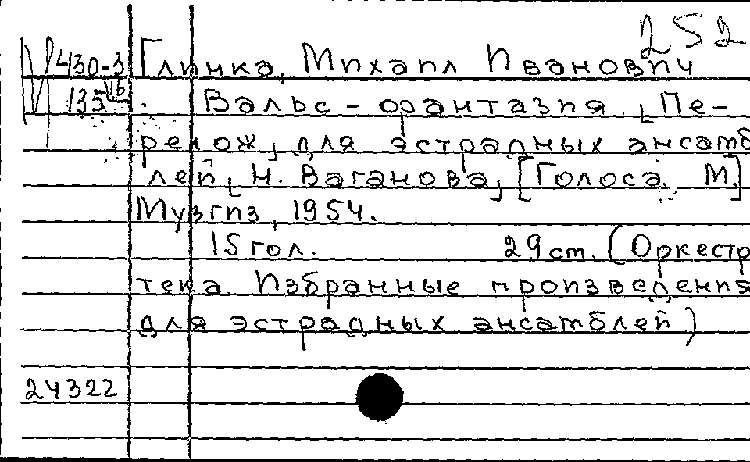 252
430-3 Глинка, Михаил Иванович
135 Вальс-фантазия. [Пе-
релож. для эстрадных ансамб
лей] Н. Ваганова, [Голоса. М.]
Музгиз, 1954.
15 гол. 29 cm. (Оркестро
тека. Избранные произведения
для эстрадных ансамблей)
24322